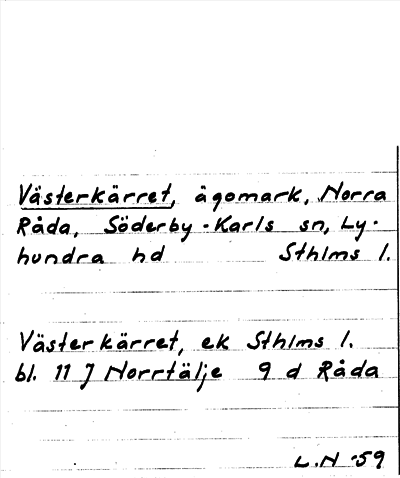 Västerkärret, ägomark, Norra
Råda, Söderby-Karls sn, Ly-
hundra hd Sthlms l.
Västerkärret, ek Sthlms l.
bl. 11 J Norrtälje 9 d Råda
L.N -59